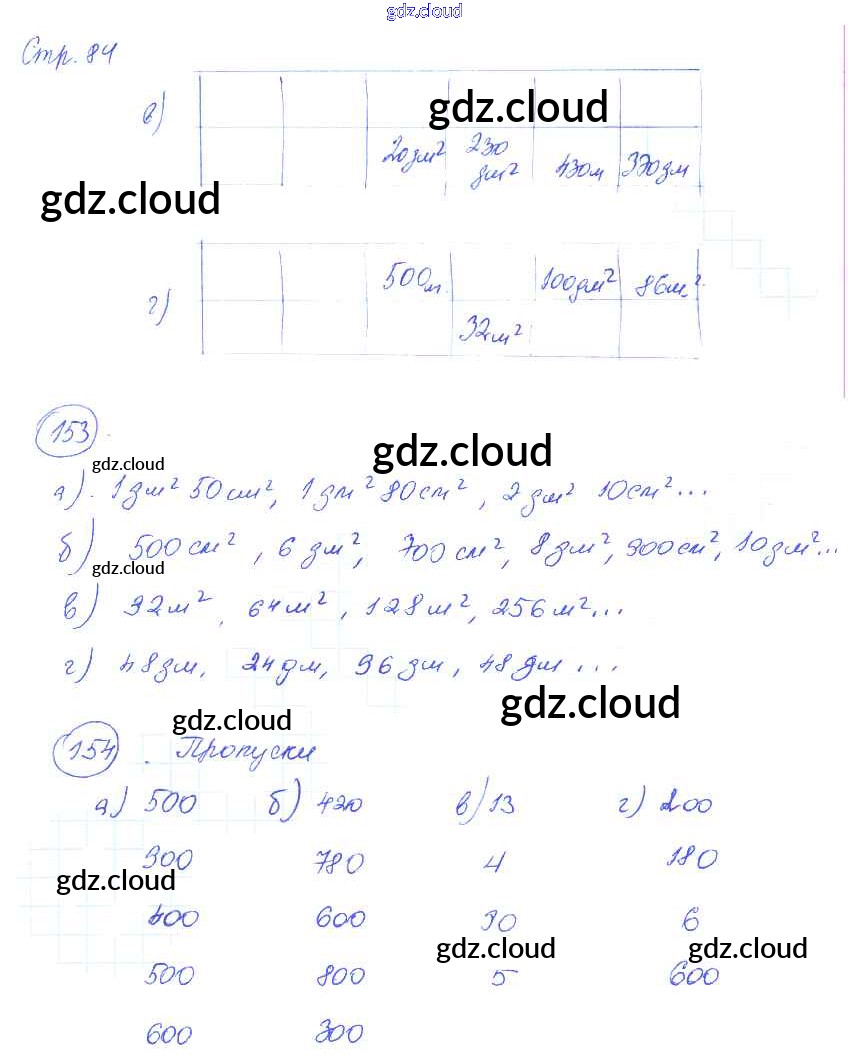 gdz.cloud
Стр. 84
gdz.cloud
в) 20дм² 230 дм² 430м 370дм
gdz.cloud
г) 500м 100дм² 86м²
32м²
153
gdz.cloud
gdz.cloud
а). 1дм² 50см², 1дм² 80см², 2дм² 10см²...
б) 500см², 6дм², 700см², 8дм², 900см², 10дм²...
gdz.cloud
в) 32м², 64м², 128м², 256м²...
г) 48дм, 24дм, 96дм, 48дм...
gdz.cloud
gdz.cloud
154. Пропуски
а) 500 б) 420 в) 13 г) 200
900 780 4 180
gdz.cloud
400 600 90 6
gdz.cloud gdz.cloud
500 800 5 600
600 300